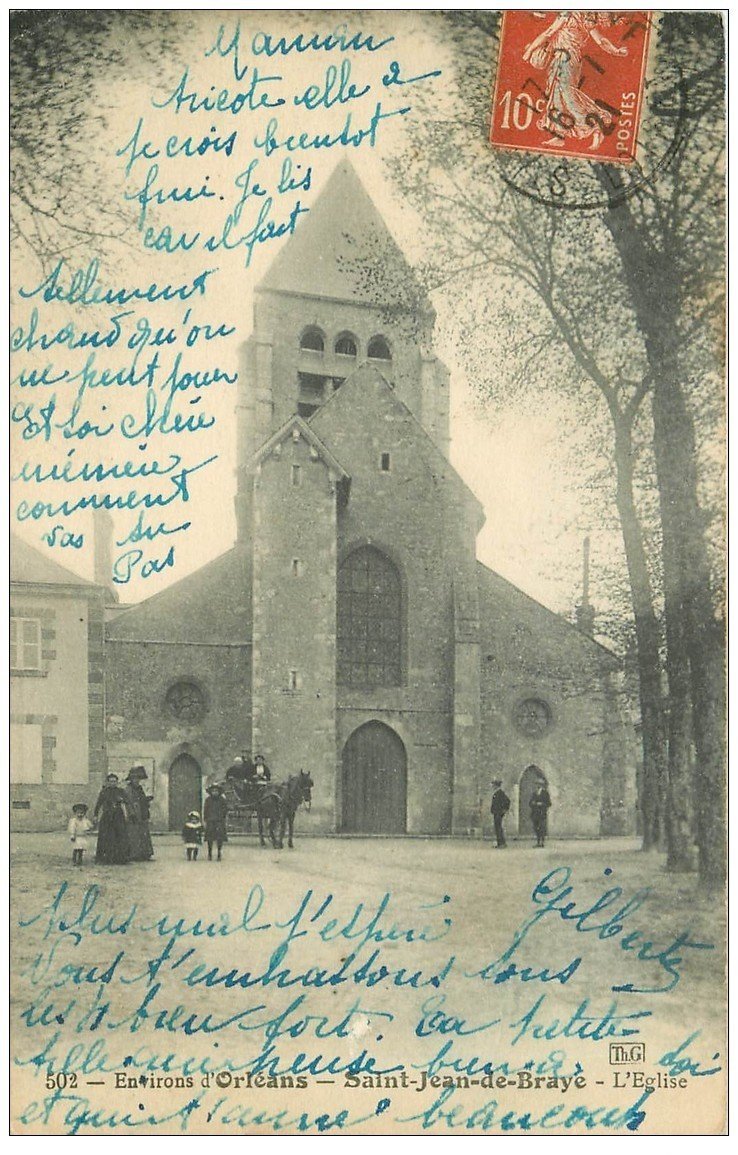 Maman
tricote elle a
je crois bientot
fini. Je lis
car il fait
tellement
chaud qu'on
ne peut jouer
Et toi chère
mémère
comment
vas tu
Pas
plus mal j'espère
Gilberte
Vous t'embrassons tous
les 4 bien fort. Ta petite
fille qui pense bien à toi
et qui t'aime beaucoup
10c POSTES
ThG
502 — Environs d'Orléans — Saint-Jean-de-Braye — L'Eglise